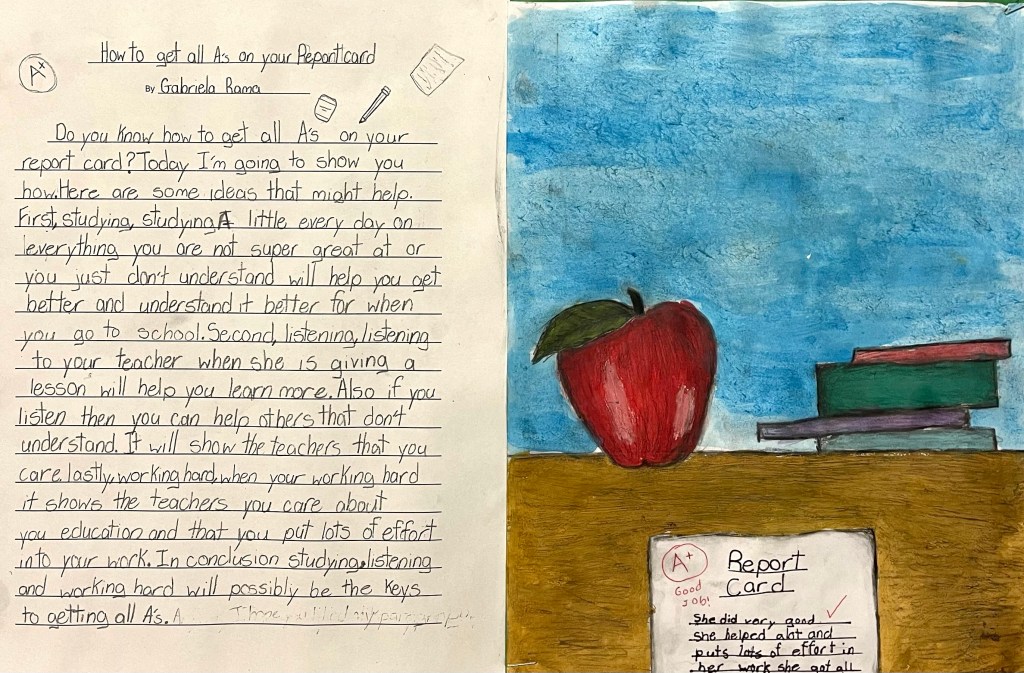 A+
How to get all A's on your Report card
By Gabriela Rama
Do you know how to get all A's on your
report card? Today I'm going to show you
how. Here are some ideas that might help.
First, studying, studying A little every day on
everything you are not super great at or
you just don't understand will help you get
better and understand it better for when
you go to school. Second, listening, listening
to your teacher when she is giving a
lesson will help you learn more. Also if you
listen then you can help others that don't
understand. It will show the teachers that you
care. lastly, working hard, when your working hard
it shows the teachers you care about
you education and that you put lots of effort
into your work. In conclusion studying, listening
and working hard will possibly be the keys
to getting all A's. A I hope you liked my
A+
Good
Job!
Report
Card
She did very good
she helped alot and
puts lots of effort in
her work she got all